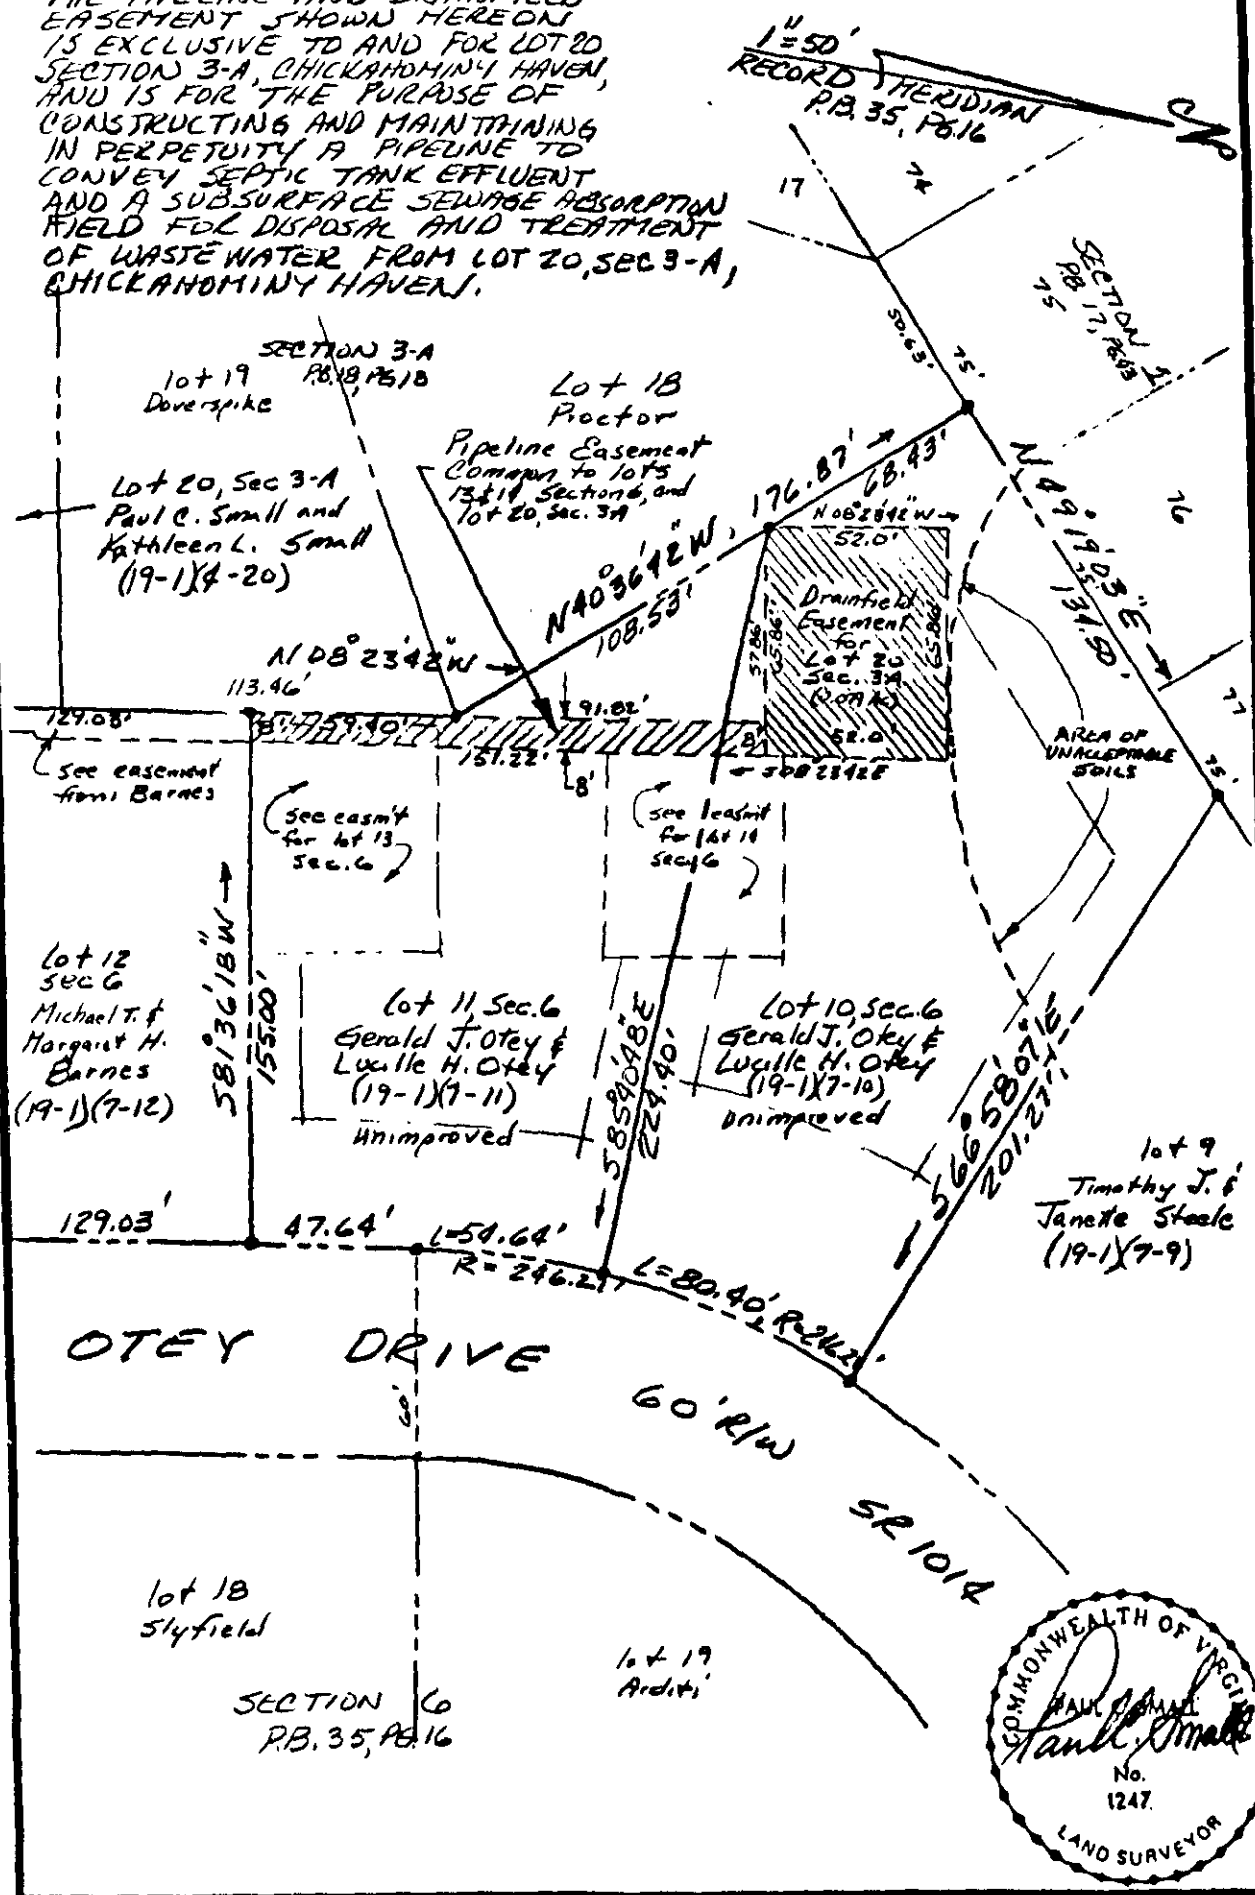 THE PIPELINE AND DRAINFIELD
EASEMENT SHOWN HEREON
IS EXCLUSIVE TO AND FOR LOT 20
SECTION 3-A, CHICKAHOMINY HAVEN,
AND IS FOR THE PURPOSE OF
CONSTRUCTING AND MAINTAINING
IN PERPETUITY A PIPELINE TO
CONVEY SEPTIC TANK EFFLUENT
AND A SUBSURFACE SEWAGE ABSORPTION
FIELD FOR DISPOSAL AND TREATMENT
OF WASTE WATER FROM LOT 20, SEC 3-A,
CHICKAHOMINY HAVEN.
1"=50'
RECORD MERIDIAN
P.B. 35, PG.16
17
74
SECTION 1
PB 17, PG.43
75
50.63'
75'
SECTION 3-A
P.B.18, PG.18
lot 19
Doverspike
Lot 18
Proctor
Pipeline Easement
Common to lots
13&14, Section 6, and
lot 20, Sec. 3A
Lot 20, Sec 3-A
Paul C. Small and
Kathleen L. Small
(19-1)(4-20)
N40°36'42"W, 176.87'
68.43'
108.53'
N 08°23'42"W
52.0'
N49°19'03"E
75'
134.50'
76
77
75'
Drainfield
Easement
for
Lot 20
Sec. 3A
57.86'
65.86'
65.86'
52.0'
N 08°23'42"W
113.46'
129.03'
8'
59.40'
91.82'
151.22'
8'
8'
S08 2342E
AREA OF
UNACCEPTABLE
SOILS
see easement
from Barnes
see easm't
for lot 13
sec. 6
see easm't
for lot 14
sec. 6
S81°36'18"W
155.00'
lot 12
sec 6
Michael T. &
Margaret H.
Barnes
(19-1)(7-12)
Lot 11, Sec. 6
Gerald J. Otey &
Lucille H. Otey
(19-1)(7-11)
Unimproved
S85°40'48"E
224.40'
Lot 10, sec. 6
Gerald J. Otey &
Lucille H. Otey
(19-1)(7-10)
Unimproved
S66°58'07"E
201.27'
lot 9
Timothy J. &
Janette Steele
(19-1)(7-9)
129.03'
47.64'
L=54.64'
R=246.21'
L=80.40', R=246.21'
OTEY DRIVE
60'
60' R/W
SR 1014
lot 18
Slyfield
lot 19
Arditi
SECTION 6
P.B. 35, PG.16
COMMONWEALTH OF VIRGINIA
PAUL C. SMALL
Paul C. Small
No.
1247
LAND SURVEYOR